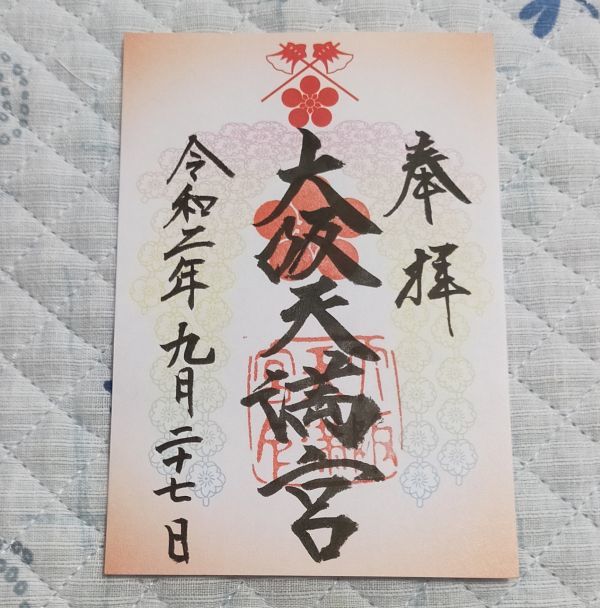 奉拝
大阪天満宮
令和二年九月二十七日